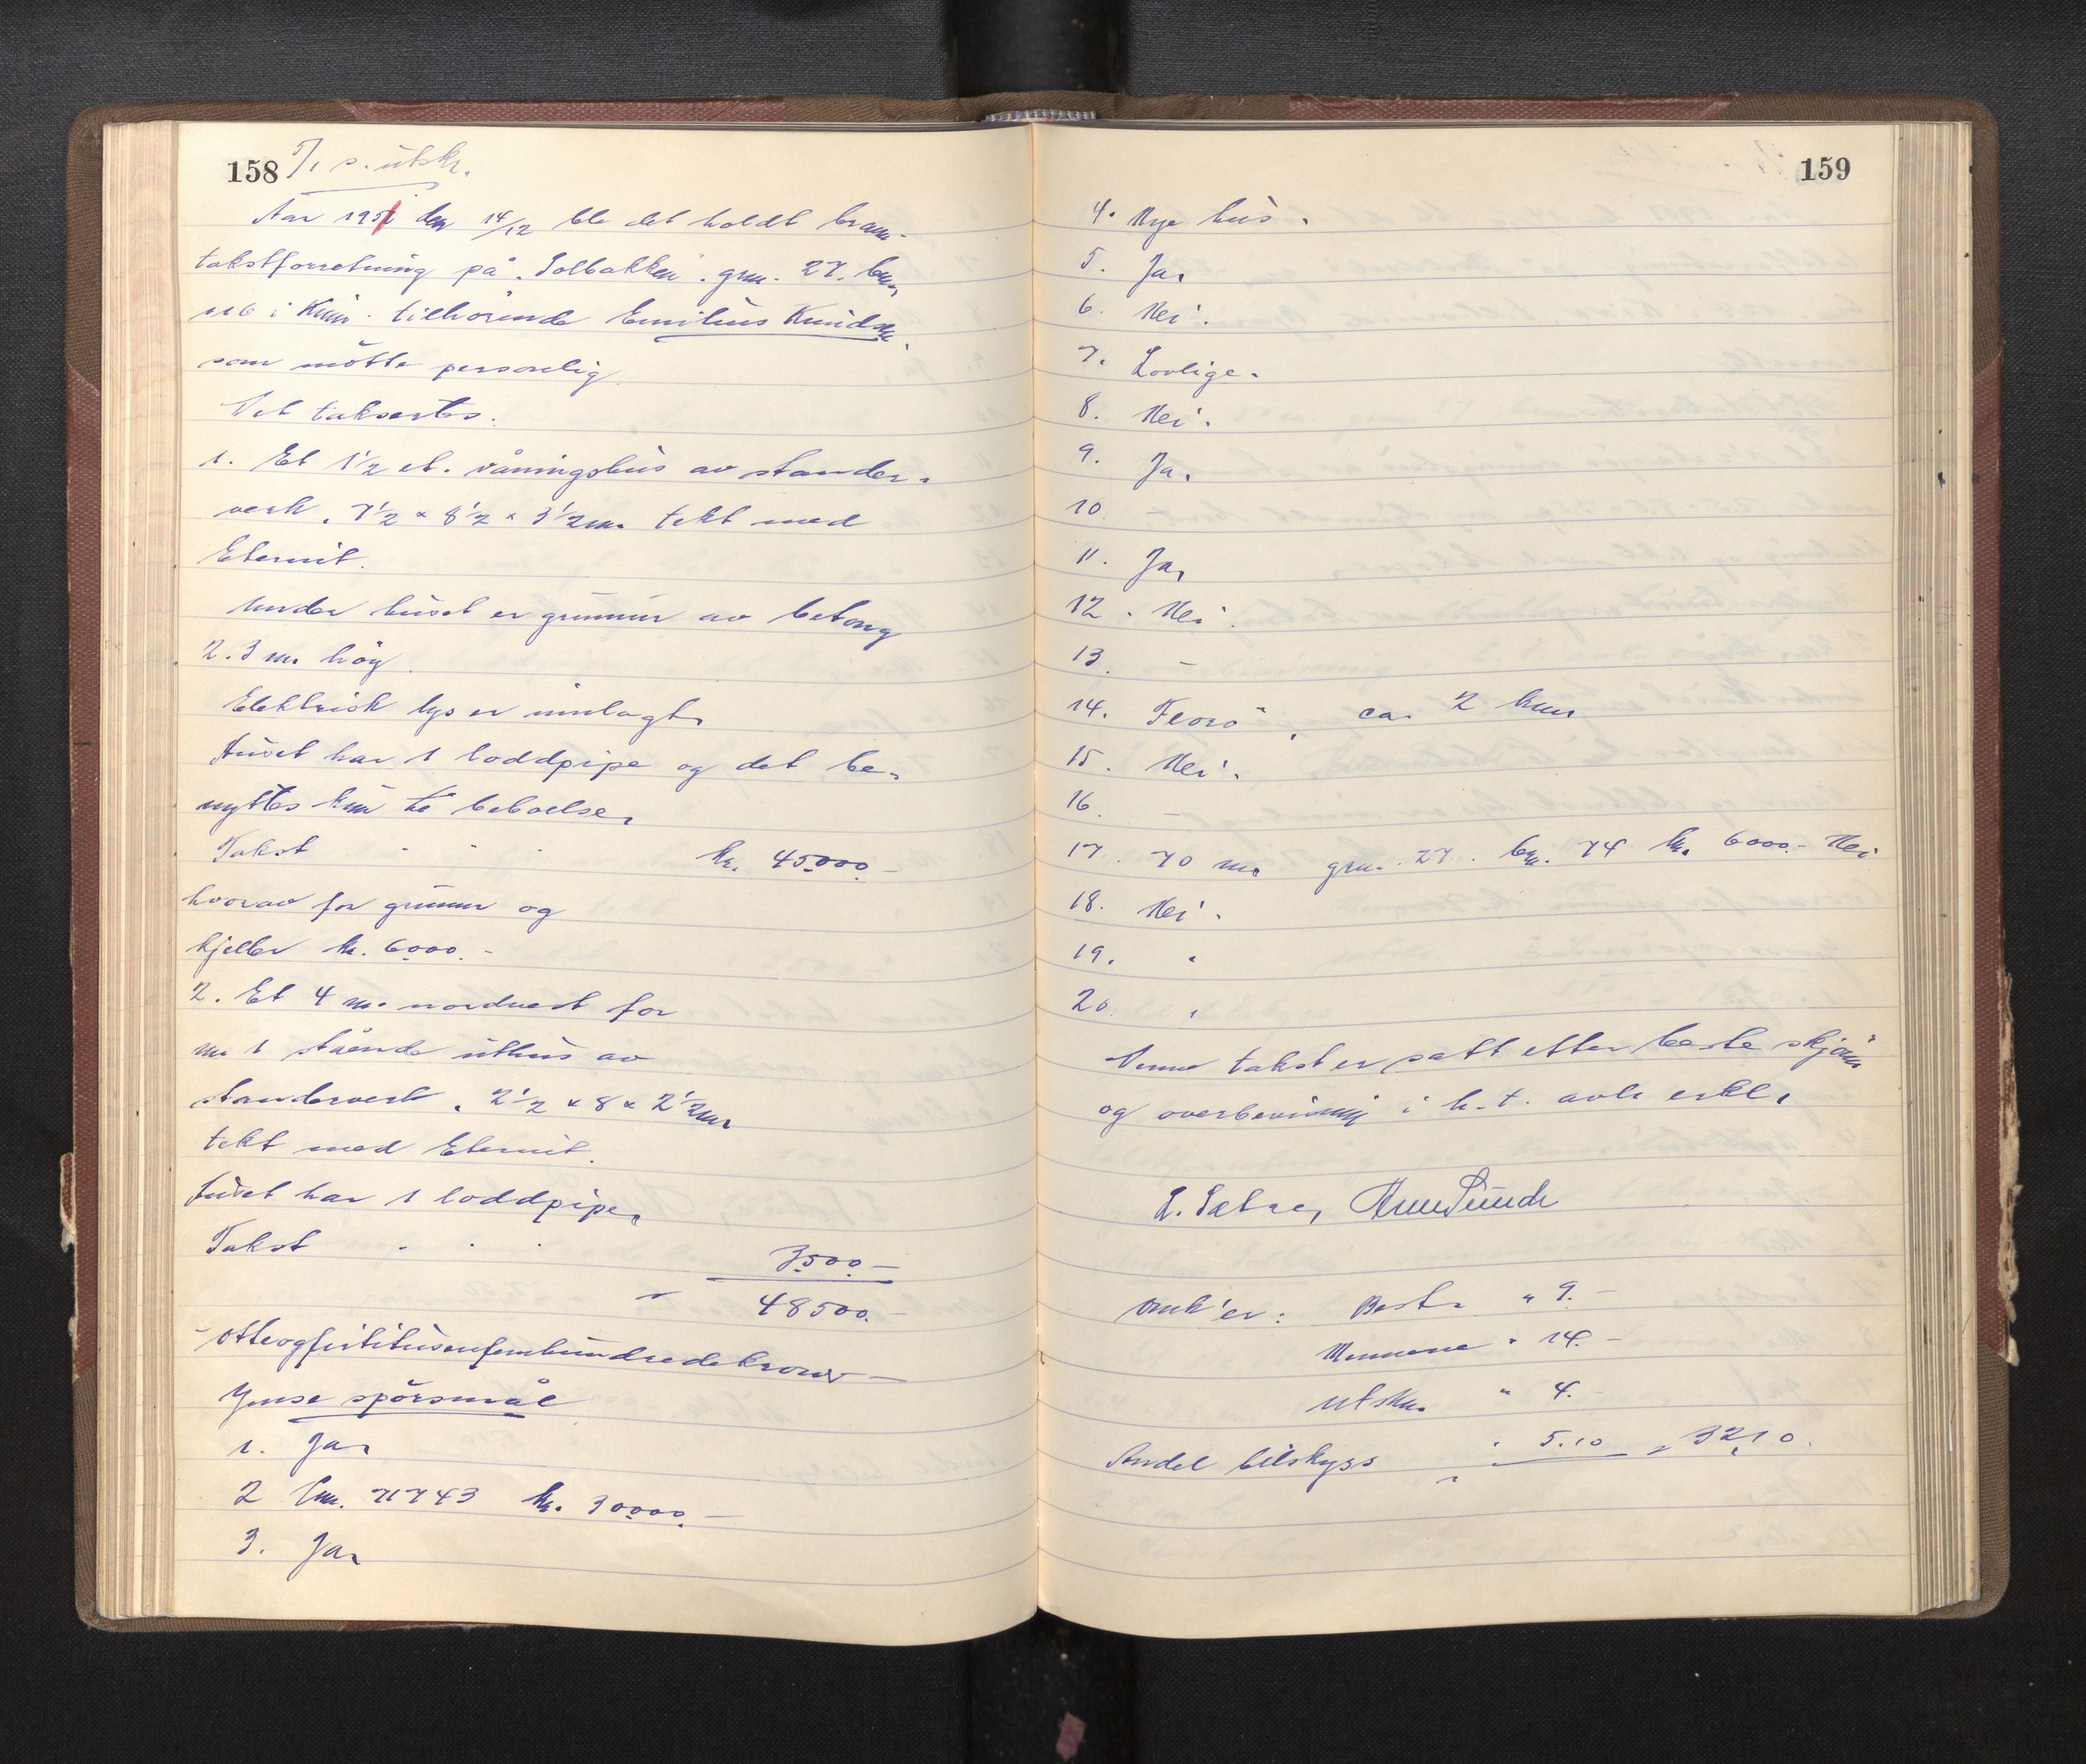 158 5/1 s. utskr.
Aar 1951 den 14/12 ble det holdt brann-
takstforretning på "Solbakken" gnr. 27. bnr.
116 i Kinn tilhörende Emilius Knudsen,
som møtte personlig.
Det taksertes:
1. Et 1 1/2 et. våningshus av stender-
verk. 7 1/2 x 8 1/2 x 3 1/2 m. tekt med
Eternit.
Under huset er grunnur av betong
2.3 m. höy.
Elektrisk lys er innlagt.
Huset har 1 loddpipe og det be-
nyttes kun til beboelse.
Takst . . . kr. 45000.-
hvorav for grunnur og
kjeller kr. 6000.-
2. Et 4 m. nordvest for
nr. 1 stående uthus av
standerverk. 2 1/2 x 8 x 2 1/2 m.
tekt med Eternit.
Huset har 1 loddpipe.
Takst . . . 3500.-
" 48500.-
- otteogfirtitusenfemhundrede kroner -
Ymse spörsmål
1. Ja.
2 Lnr. 71743 kr. 30000.-
3. Ja.
159
4. Nye hus.
5. Ja.
6. Nei.
7. Lovlige.
8. Nei.
9. Ja.
10. -
11. Ja.
12. Nei.
13. -
14. Florö, ca. 2 km.
15. Nei.
16. -
17. 70 m. gnr. 27. bn. 74 kr. 6000.- Nei
18. Nei.
19. "
20. "
Denne takst er satt etter beste skjönn
og overbevisning i h.t. avle erkl.
L. Sætre,
Omk'er: Best. " 9.-
Mennene " 14.-
Utskr. " 4.-
Andel bilskyss " 5.10 = 32.10.